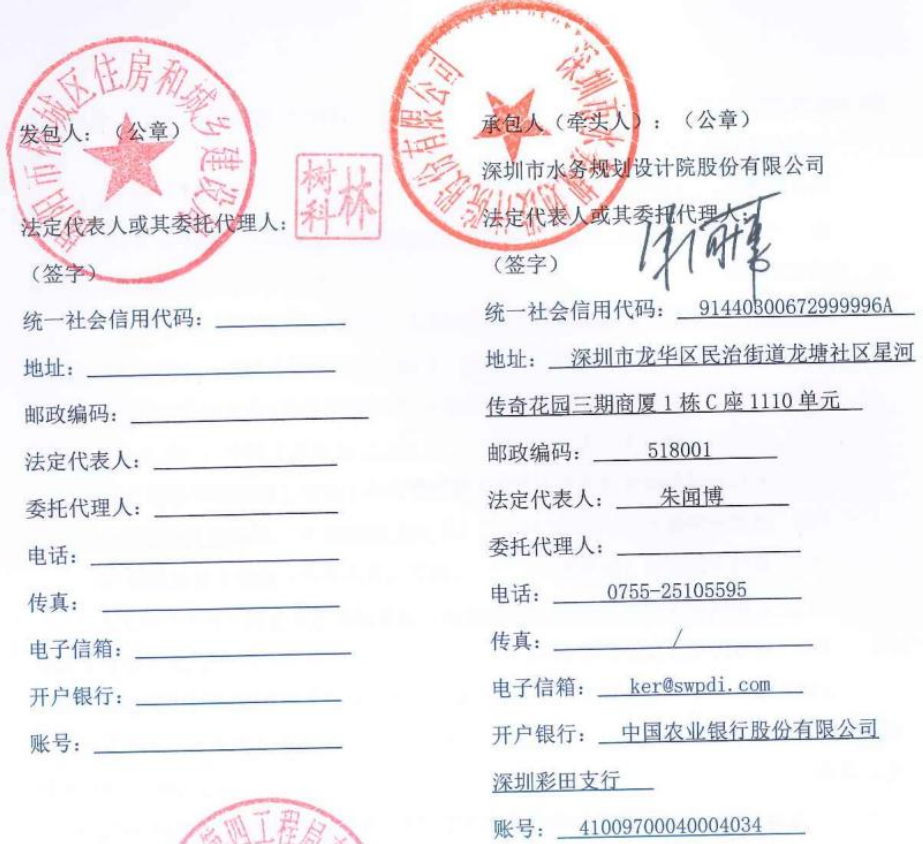 发包人：（公章）
法定代表人或其委托代理人：
（签字）
统一社会信用代码：
地址：
邮政编码：
法定代表人：
委托代理人：
电话：
传真：
电子信箱：
开户银行：
账号：
树林
科
承包人（牵头人）：（公章）
深圳市水务规划设计院股份有限公司
法定代表人或其委托代理人：
（签字）
统一社会信用代码：91440300672999996A
地址：深圳市龙华区民治街道龙塘社区星河
传奇花园三期商厦1栋C座1110单元
邮政编码：518001
法定代表人：朱闻博
委托代理人：
电话：0755-25105595
传真：/
电子信箱：ker@swpdi.com
开户银行：中国农业银行股份有限公司
深圳彩田支行
账号：41009700040004034
城区住房和城乡建设局
第四工程局有